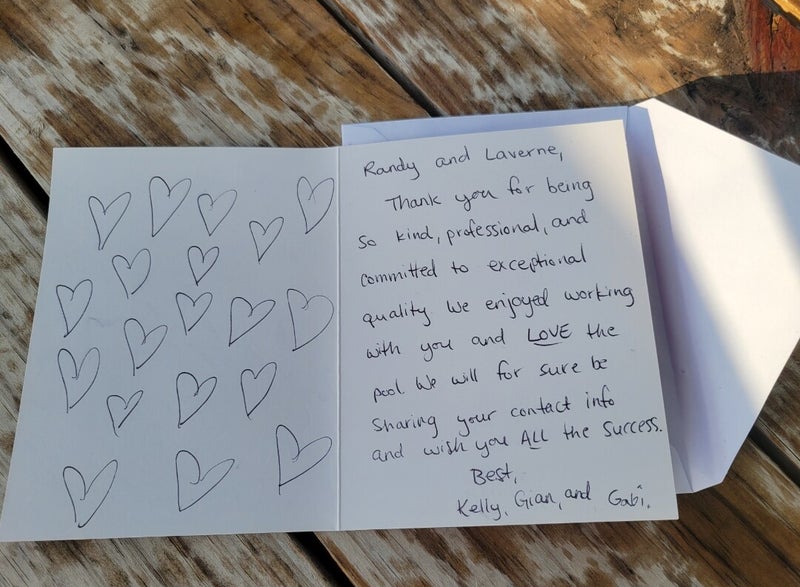 Randy and Laverne,
Thank you for being
so kind, professional, and
committed to exceptional
quality. We enjoyed working
with you and LOVE the
pool. We will for sure be
sharing your contact info
and wish you ALL the success.
Best,
Kelly, Gian, and Gabi.